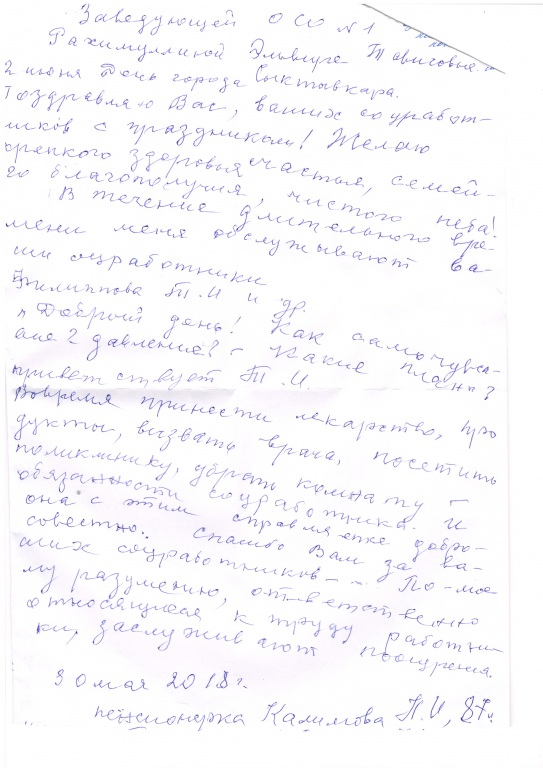 Заведующей ОСО №1
Рахимуллиной Эльвире
2 июня День города Сыктывкара.
Поздравляю Вас, ваших соработ-
ников с праздником! Желаю
крепкого здоровья счастья, семей-
го благополучия, чистого неба!
В течение длительного вре-
мени меня обслуживают ва-
ши соцработники
Филиппова Т.И и др.
"Добрый день! Как самочувст-
вие? давление? - Какие планы?
приветствует Т.И.
Вовремя принести лекарство, про
дукты, вызвать врача, посетить
поликлинику, убрать комнату -
обязанности соцработника. И
она с этим справляется добро-
совестно. Спасибо Вам за ва-
ших соцработников - ... По-мое
му разумению, ответственно
относящиеся к труду работни
ки, заслуживают поощрения.
30 мая 2018г.
пенсионерка Калимова Н.И, 87л